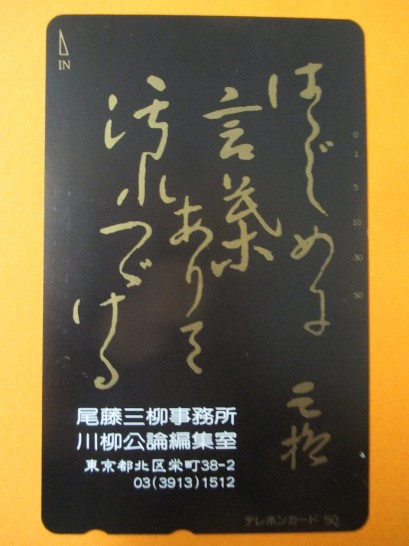 IN
はじめに
言葉
ありて
汚れつづける
三柳
0
1
5
10
30
50
尾藤三柳事務所
川柳公論編集室
東京都北区栄町38-2
03(3913)1512
テレホンカード 50